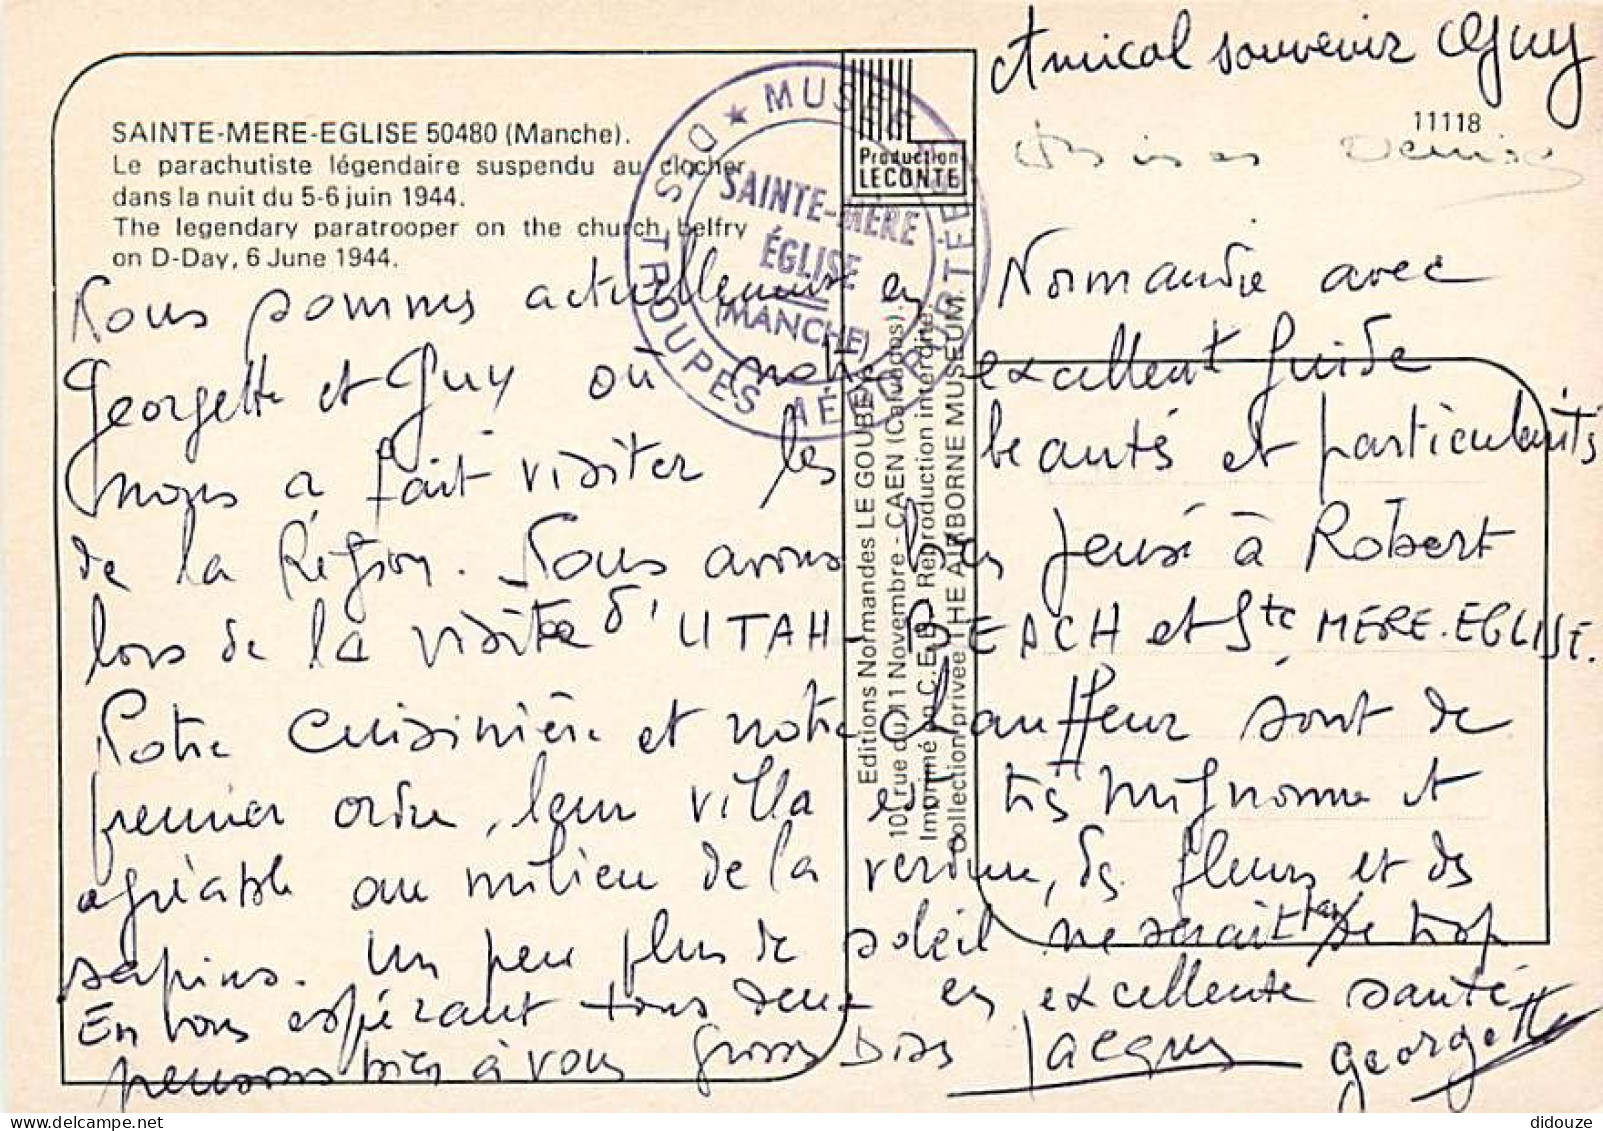 Amical souvenir Guy
11118
SAINTE-MERE-EGLISE 50480 (Manche).
Le parachutiste légendaire suspendu au clocher
dans la nuit du 5-6 juin 1944.
The legendary paratrooper on the church belfry
on D-Day, 6 June 1944.
★ MUSÉE DES TROUPES AÉROPORTÉES
SAINTE-MÈRE
ÉGLISE
(MANCHE)
Production
LECONTE
Editions Normandes LE GOUBEY
10, rue du 11 Novembre - CAEN (Calvados).
Imprimé en C.E.E. Reproduction interdite.
Collection privée THE AIRBORNE MUSEUM.
Nous sommes actuellement en Normandie avec
Georgette et Guy où notre excellent guide
nous a fait visiter les beautés et particularités
de la Région. Nous avons bien pensé à Robert
lors de la visite d'UTAH-BEACH et Ste MERE-EGLISE.
Notre cuisinière et notre chauffeur sont de
premier ordre, leur villa est très mignonne et
agréable au milieu de la verdure, des fleurs et des
sapins. Un peu plus de soleil ne serait pas de trop
En vous espérant tous deux en excellente santé
pensons bien à vous Grosses Bises Jacques Georgette
didouze @ delcampe.net